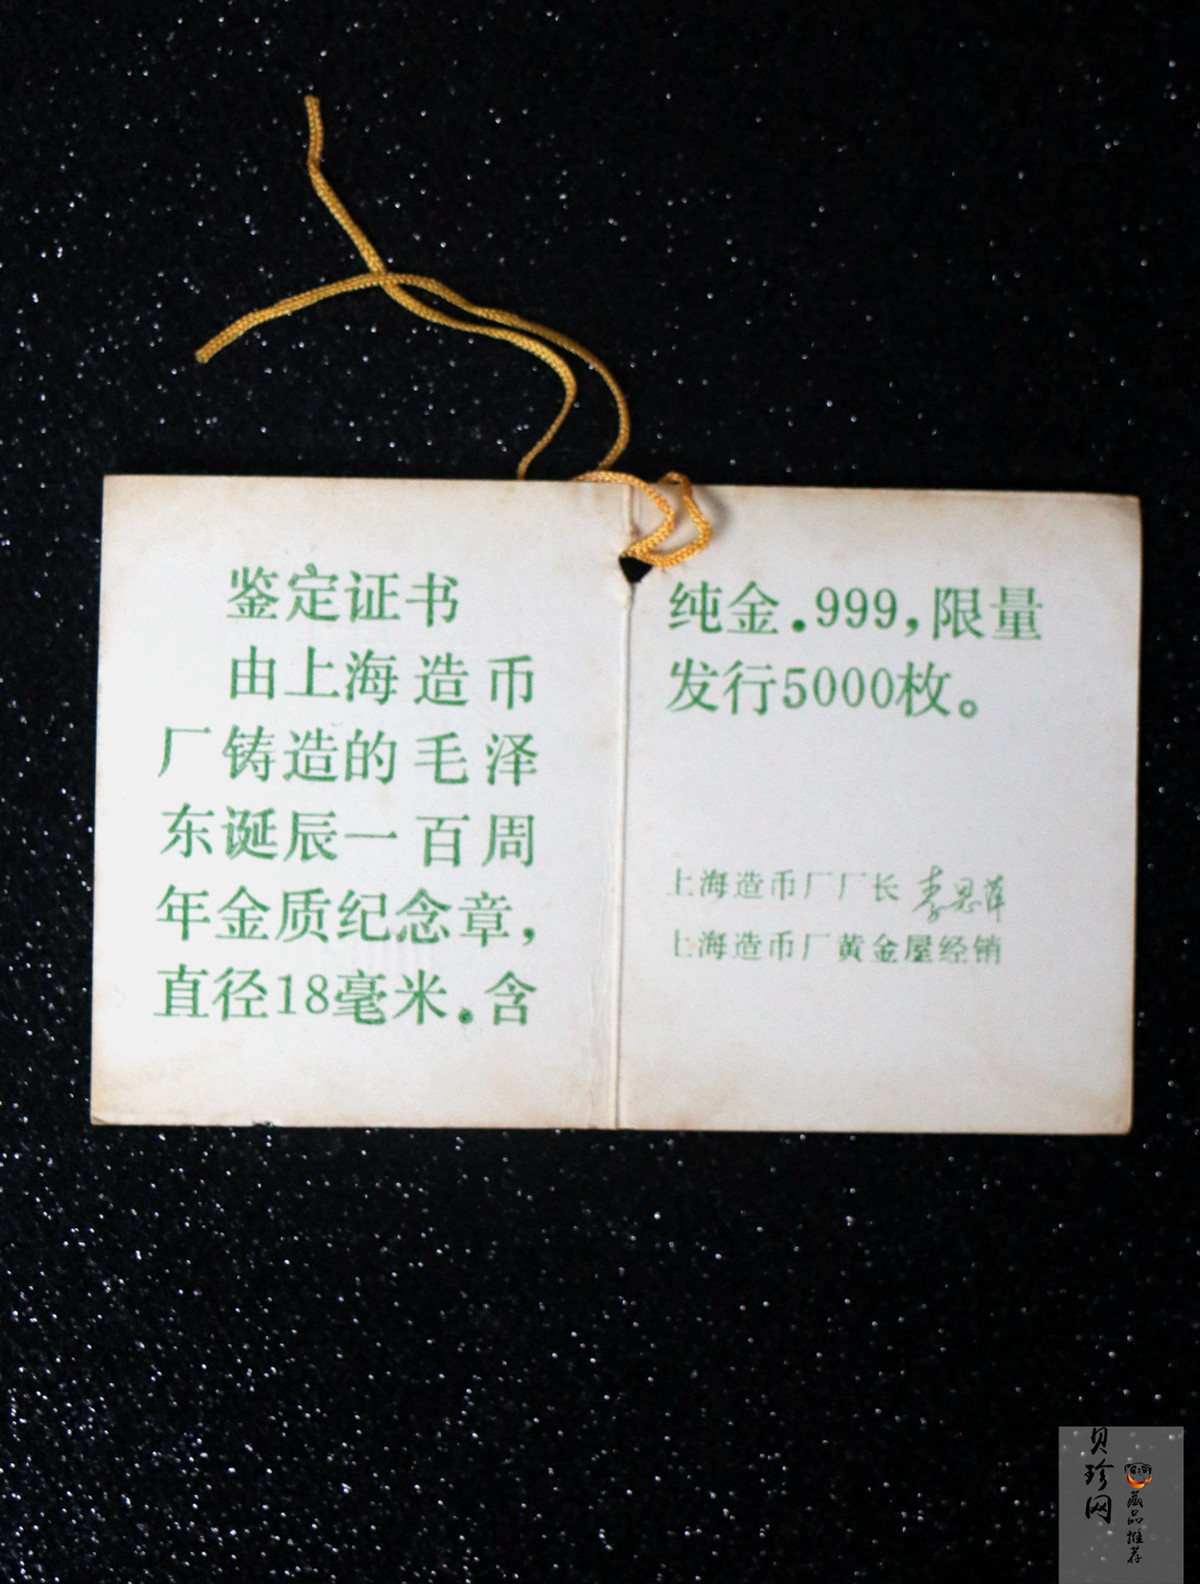 鉴定证书
由上海造币
厂铸造的毛泽
东诞辰一百周
年金质纪念章，
直径18毫米.含
纯金.999,限量
发行5000枚。
上海造币厂厂长
上海造币厂黄金屋经销
贝珍网
藏品推荐